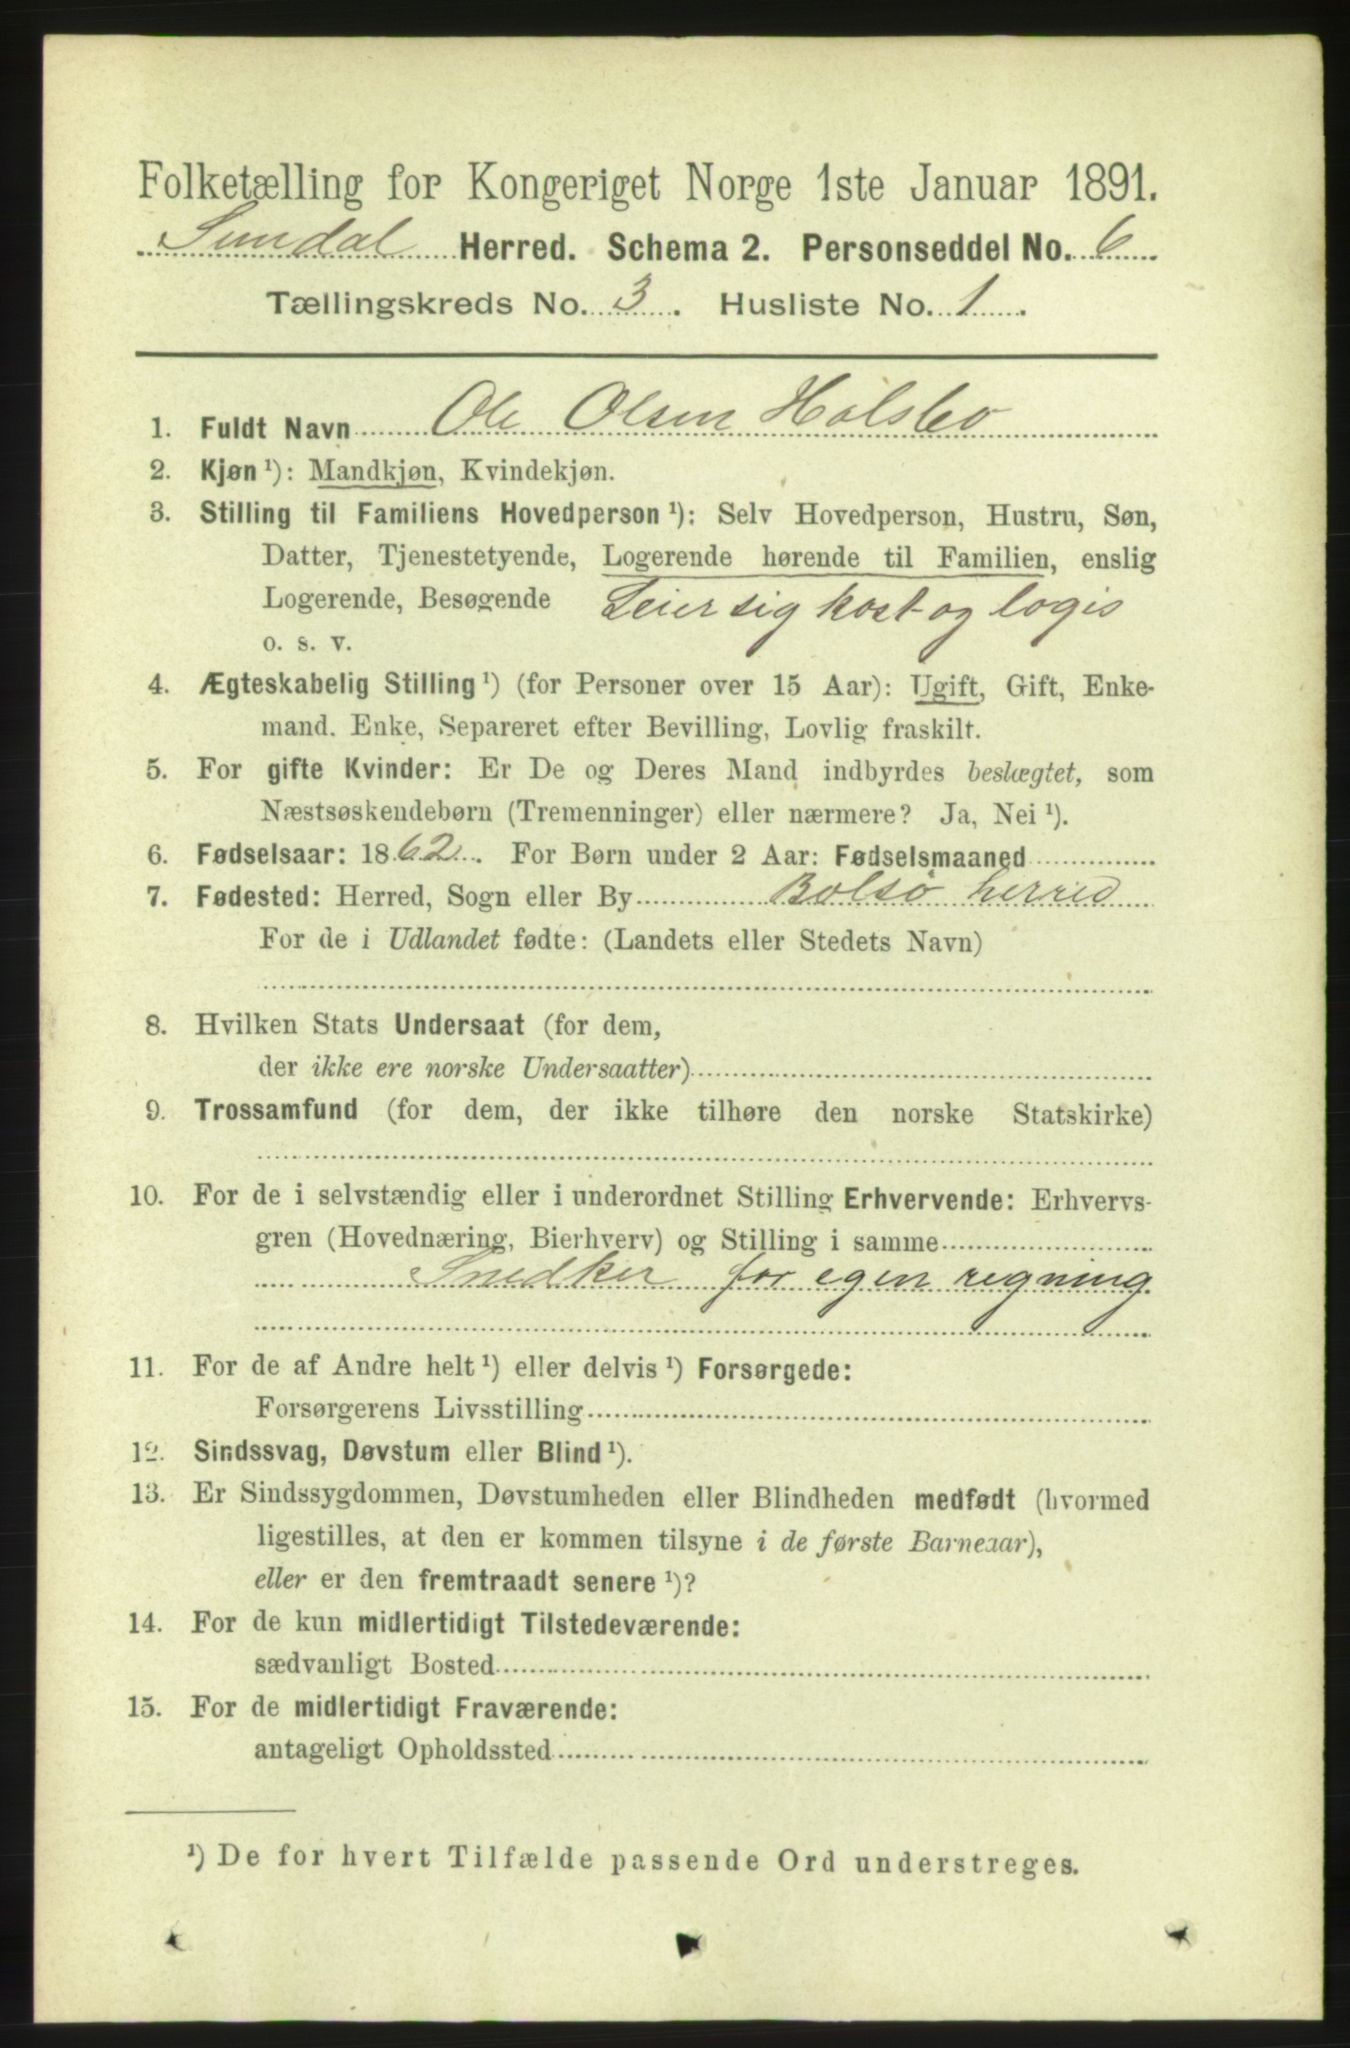 Folketælling for Kongeriget Norge 1ste Januar 1891.
Sundal Herred. Schema 2. Personseddel No. 6
Tællingskreds No. 3. Husliste No. 1.
1. Fuldt Navn Ole Olsen Hølsbø
2. Kjøn ¹): Mandkjøn, Kvindekjøn.
3. Stilling til Familiens Hovedperson ¹): Selv Hovedperson, Hustru, Søn,
Datter, Tjenestetyende, Logerende hørende til Familien, enslig
Logerende, Besøgende Leier sig kost og logis
o. s. v.
4. Ægteskabelig Stilling ¹) (for Personer over 15 Aar): Ugift, Gift, Enke-
mand. Enke, Separeret efter Bevilling, Lovlig fraskilt.
5. For gifte Kvinder: Er De og Deres Mand indbyrdes beslægtet, som
Næstsøskendebørn (Tremenninger) eller nærmere? Ja, Nei ¹).
6. Fødselsaar: 1862. For Børn under 2 Aar: Fødselsmaaned
7. Fødested: Herred, Sogn eller By Bolsø herred
For de i Udlandet fødte: (Landets eller Stedets Navn)
8. Hvilken Stats Undersaat (for dem,
der ikke ere norske Undersaatter)
9. Trossamfund (for dem, der ikke tilhøre den norske Statskirke)
10. For de i selvstændig eller i underordnet Stilling Erhvervende: Erhvervs-
gren (Hovednæring, Bierhverv) og Stilling i samme
Snedker for egen regning
11. For de af Andre helt ¹) eller delvis ¹) Forsørgede:
Forsørgerens Livsstilling
12. Sindssvag, Døvstum eller Blind ¹).
13. Er Sindssygdommen, Døvstumheden eller Blindheden medfødt (hvormed
ligestilles, at den er kommen tilsyne i de første Barneaar),
eller er den fremtraadt senere ¹)?
14. For de kun midlertidigt Tilstedeværende:
sædvanligt Bosted
15. For de midlertidigt Fraværende:
antageligt Opholdssted
¹) De for hvert Tilfælde passende Ord understreges.